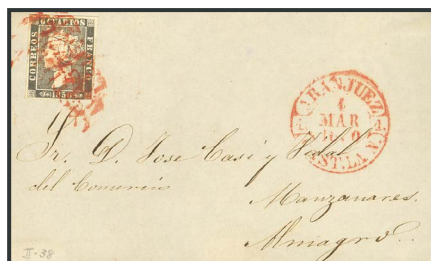 CORREOS
FRANCO
1850
ARANJUEZ
4
MAR
EST. LA N.
Sr. D. Jose Casi y Vidal
del Comercio
Manzanares.
Almagro.
II-38